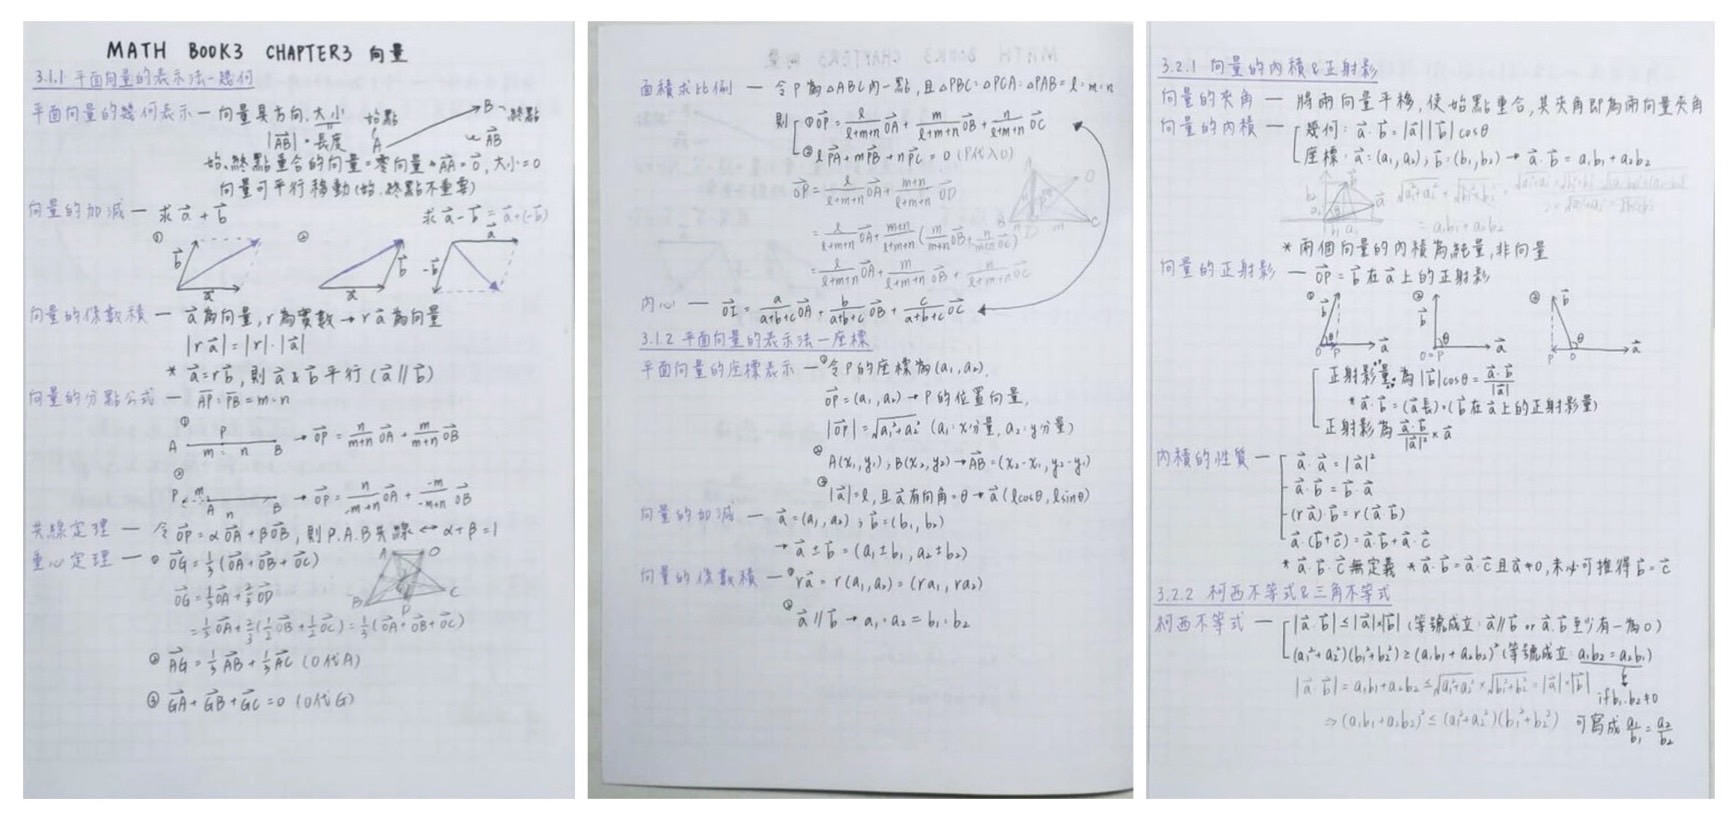 MATH BOOK3 CHAPTER3 向量
3.1.1 平面向量的表示法-幾何
平面向量的幾何表示 — 向量具方向、大小
始點 A B 終點 AB⃗
|AB⃗| = 長度
始、終點重合的向量=零向量 = AA⃗ = 0⃗, 大小=0
向量可平行移動(始、終點不重要)
向量的加減 — 求 a⃗ + b⃗ 求 a⃗ - b⃗ = a⃗+(-b⃗)
① b⃗ a⃗ ② b⃗ a⃗ a⃗ -b⃗
向量的係數積 — a⃗ 為向量, r 為實數 → r a⃗ 為向量
|r a⃗| = |r|·|a⃗|
* a⃗ = r b⃗, 則 a⃗ & b⃗ 平行 (a⃗ // b⃗)
向量的分點公式 — AP:PB = m:n
① A P B m : n → OP⃗ = n/(m+n) OA⃗ + m/(m+n) OB⃗
② P m A n B → OP⃗ = n/(-m+n) OA⃗ + -m/(-m+n) OB⃗
共線定理 — 令 OP⃗ = αOA⃗ + βOB⃗, 則 P.A.B 共線 ↔ α+β=1
重心定理 — ① OG⃗ = 1/3 (OA⃗ + OB⃗ + OC⃗)
OG⃗ = 1/3 OA⃗ + 2/3 OD⃗
= 1/3 OA⃗ + 2/3 (1/2 OB⃗ + 1/2 OC⃗) = 1/3 (OA⃗ + OB⃗ + OC⃗)
A O B D C
② AG⃗ = 1/3 AB⃗ + 1/3 AC⃗ (O代A)
③ GA⃗ + GB⃗ + GC⃗ = 0 (O代G)
面積求比例 — 令 P 為 △ABC 內一點, 且 △PBC:△PCA:△PAB = l:m:n
則 ① OP⃗ = l/(l+m+n) OA⃗ + m/(l+m+n) OB⃗ + n/(l+m+n) OC⃗
② l PA⃗ + m PB⃗ + n PC⃗ = 0 (P代入O)
OP⃗ = l/(l+m+n) OA⃗ + (m+n)/(l+m+n) OD⃗
= l/(l+m+n) OA⃗ + (m+n)/(l+m+n) (m/(m+n) OB⃗ + n/(m+n) OC⃗)
= l/(l+m+n) OA⃗ + m/(l+m+n) OB⃗ + n/(l+m+n) OC⃗
內心 — OI⃗ = a/(a+b+c) OA⃗ + b/(a+b+c) OB⃗ + c/(a+b+c) OC⃗
3.1.2 平面向量的表示法-座標
平面向量的座標表示 — ① 令 P 的座標為 (a₁, a₂),
OP⃗ = (a₁, a₂) → P 的位置向量,
|OP⃗| = √(a₁²+a₂²) (a₁: x分量, a₂: y分量)
② A(x₁, y₁); B(x₂, y₂) → AB⃗ = (x₂-x₁, y₂-y₁)
③ |a⃗| = l, 且 a⃗ 有向角 = θ → a⃗ (lcosθ, lsinθ)
向量的加減 — a⃗ = (a₁, a₂); b⃗ = (b₁, b₂)
→ a⃗ ± b⃗ = (a₁±b₁, a₂±b₂)
向量的係數積 — ① ra⃗ = r(a₁, a₂) = (ra₁, ra₂)
② a⃗ // b⃗ → a₁:a₂ = b₁:b₂
3.2.1 向量的內積&正射影
向量的夾角 — 將兩向量平移, 使始點重合, 其夾角即為兩向量夾角
向量的內積 — 幾何: a⃗·b⃗ = |a⃗||b⃗|cosθ
座標: a⃗ = (a₁, a₂); b⃗ = (b₁, b₂) → a⃗·b⃗ = a₁b₁ + a₂b₂
= a₁b₁ + a₂b₂
* 兩個向量的內積為純量, 非向量
向量的正射影 — OP⃗ = b⃗ 在 a⃗ 上的正射影
① b⃗ θ O P a⃗ ② b⃗ θ O=P a⃗ ③ b⃗ θ P O a⃗
正射影量: 為 |b⃗|cosθ = a⃗·b⃗/|a⃗|
* a⃗·b⃗ = (a⃗長)·(b⃗ 在 a⃗ 上的正射影量)
正射影為 a⃗·b⃗/|a⃗|² × a⃗
內積的性質 — a⃗·a⃗ = |a⃗|²
a⃗·b⃗ = b⃗·a⃗
(r a⃗)·b⃗ = r(a⃗·b⃗)
a⃗·(b⃗+c⃗) = a⃗·b⃗ + a⃗·c⃗
* a⃗·b⃗·c⃗ 無定義 * a⃗·b⃗ = a⃗·c⃗ 且 a⃗≠0, 未必可推得 b⃗ = c⃗
3.2.2 柯西不等式&三角不等式
柯西不等式 — |a⃗·b⃗| ≤ |a⃗|×|b⃗| (等號成立: a⃗//b⃗ or a⃗.b⃗ 至少有一為0)
(a₁²+a₂²)(b₁²+b₂²) ≥ (a₁b₁+a₂b₂)² (等號成立: a₁b₂ = a₂b₁)
|a⃗·b⃗| = a₁b₁+a₂b₂ ≤ √(a₁²+a₂²) × √(b₁²+b₂²) = |a⃗|×|b⃗| if b₁.b₂≠0
⇒ (a₁b₁+a₂b₂)² ≤ (a₁²+a₂²)(b₁²+b₂²) 可寫成 a₁/b₁ = a₂/b₂